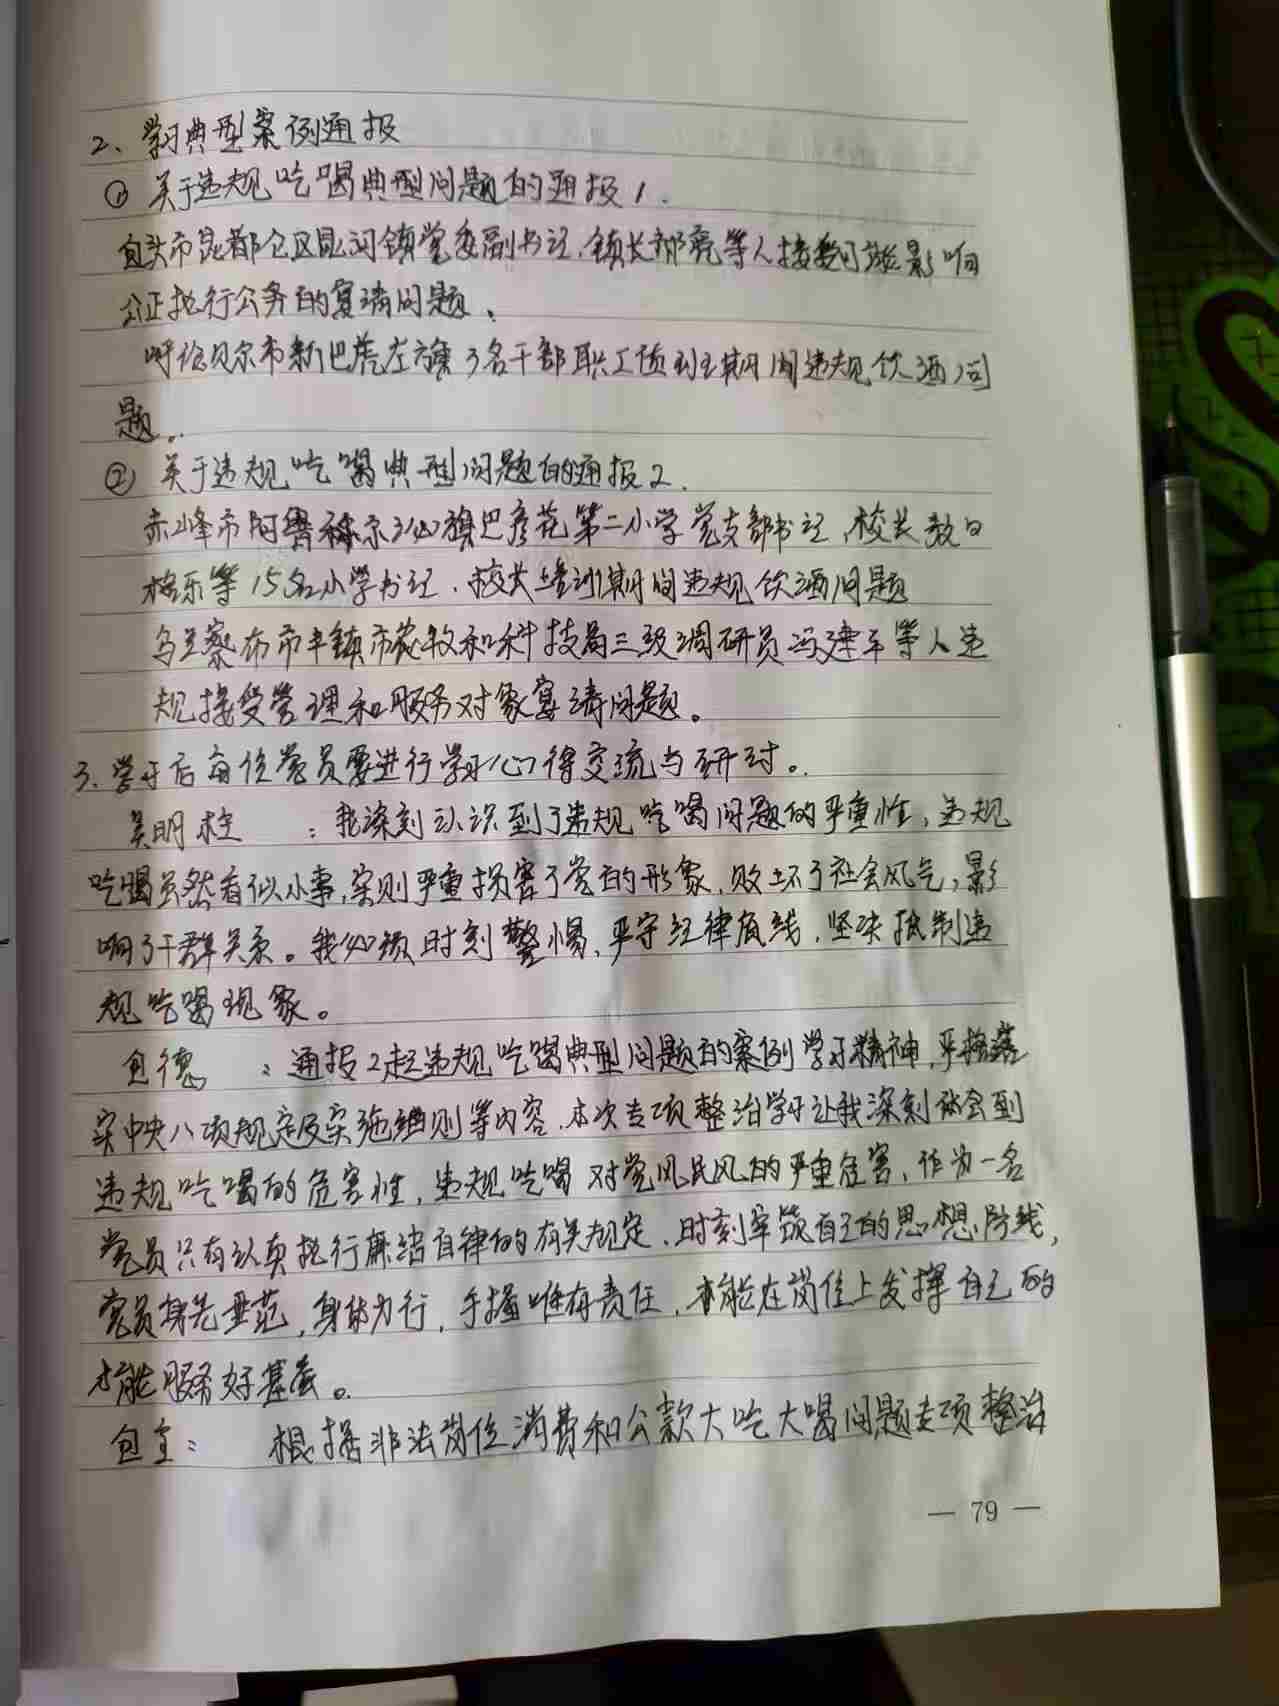 2、学习典型案例通报
① 关于违规吃喝典型问题的通报1.
包头市昆都仑区昆河镇党委副书记、镇长郝亮等人接受可能影响
公正执行公务的宴请问题、
呼伦贝尔市新巴虎左旗3名干部职工值班期间违规饮酒问
题。
② 关于违规吃喝典型问题的通报2.
赤峰市阿鲁科尔沁旗巴彦花第二小学党支部书记、校长敖日
格乐等15名小学书记、校长培训期间违规饮酒问题
乌兰察布市丰镇市农牧和科技局三级调研员冯建平等人违
规接受管理和服务对象宴请问题。
3. 学习后每位党员要进行学习心得交流与研讨。
吴明柱 ：我深刻认识到了违规吃喝问题的严重性，违规
吃喝虽然看似小事，实则严重损害了党的形象，败坏了社会风气，影
响了干群关系。我必须时刻警惕、严守纪律底线，坚决抵制违
规吃喝现象。
包德 ：通报2起违规吃喝典型问题的案例学习精神，严格落
实中央八项规定及实施细则等内容，本次专项整治学习让我深刻体会到
违规吃喝的危害性，违规吃喝对党风民风的严重危害，作为一名
党员只有认真执行廉洁自律的有关规定，时刻牢筑自己的思想防线，
党员身先垂范，身体力行，手握唯有责任，才能在岗位上发挥自己的
才能服务好基层。
包宝： 根据非法岗位消费和公款大吃大喝问题专项整治
— 79 —